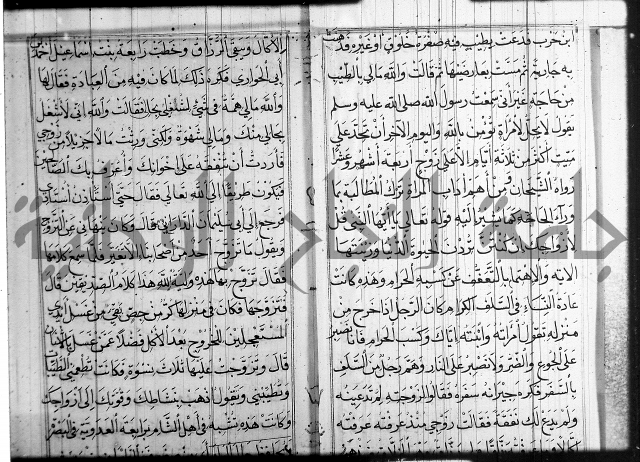 ابن حرب فدعت بطيب فيه صفرة خلوق او غيره فدهنت
به جارية ثم مست بعارضيها ثم قالت والله مالي بالطيب
من حاجة غير اني سمعت رسول الله صلى الله عليه وسلم
يقول لا يحل لامرأة تؤمن بالله واليوم الاخر ان تحد على
ميت اكثر من ثلاثة ايام الا على زوج اربعة اشهر وعشرا
رواه الشيخان ومن اهم اداب المرأة ترك المطالبة بما
وراء الحاجة كما يشير اليه قوله تعالى يا ايها النبي قل
لازواجك ان كنتن تردن الحيوة الدنيا وزينتها
الاية والاهتمام بالتعفف عن كسبه الحرام وهذه كانت
عادة النساء في السلف الكرام كان الرجل اذا خرج من
منزله تقول امرأته وابنته اياك وكسب الحرام فانا نصبر
على الجوع والضر ولا نصبر على النار وهم رجل من السلف
بالسفر فكره جيرانه سفره فقالوا لزوجته لم تدعينه
ولم يدع لك نفقة فقالت زوجي منذ عرفته عرفته
الاكال وبقي الرزاق وخطبت رابعة بنت اسماعيل احمد بن
ابي الحواري فكره ذلك لما كان فيه من العبادة فقال لها
والله مالي همة في شئ لشغلي بحالي فقالت والله اني لاشغل
بحالي منك ومالي شهوة ولكني ورثت مالا جزيلا من زوجي
فاردت ان تنفقه على اخوانك واعرف بك الصالحين
فيكون طريقا الى الله تعالى فقال حتى استأذن استاذي
فرجع الى ابي سليمان الداراني قال وكان ينهاني عن التزوج
ويقول ما تزوج احد من اصحابنا الا تغير فلما سمع كلامها
فقال تزوج بها هذه ولية الله هذا كلام الصديقين قال
فتزوجها فكان في منزلها كر من جص ففني من غسل ايدي
المستعجلين للخروج بعد الاكل فضلا عمن غسل بالاشنان
قال وتزوجت عليها ثلاث نسوة فكانت تطعمني الطيبات
وتطيبني وتقول اذهب بنشاطك وقوتك الى ازواجك
وكانت هذه تشبه في اهل الشام برابعة العدوية في البصرة
جامعة النجاح الوطنية